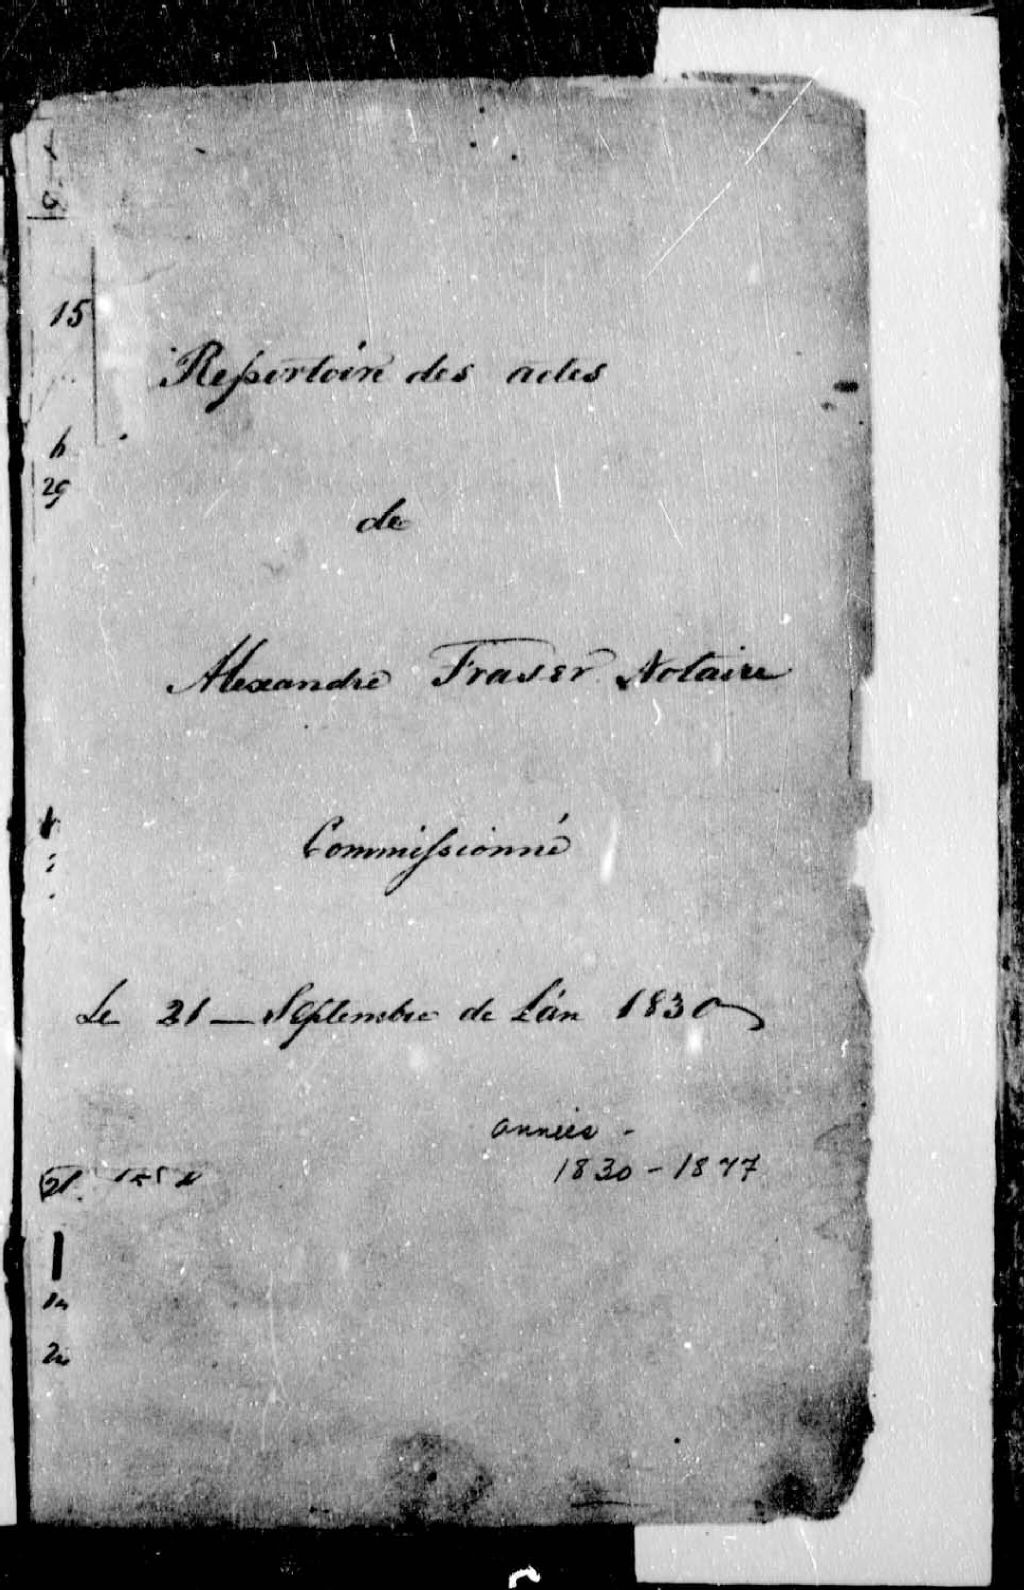 15
Repertoire des actes
h
29
de
Alexandre Fraser Notaire
Commissionné
Le 21 — Septembre de L'an 1830
années -
1830 - 1877
21.